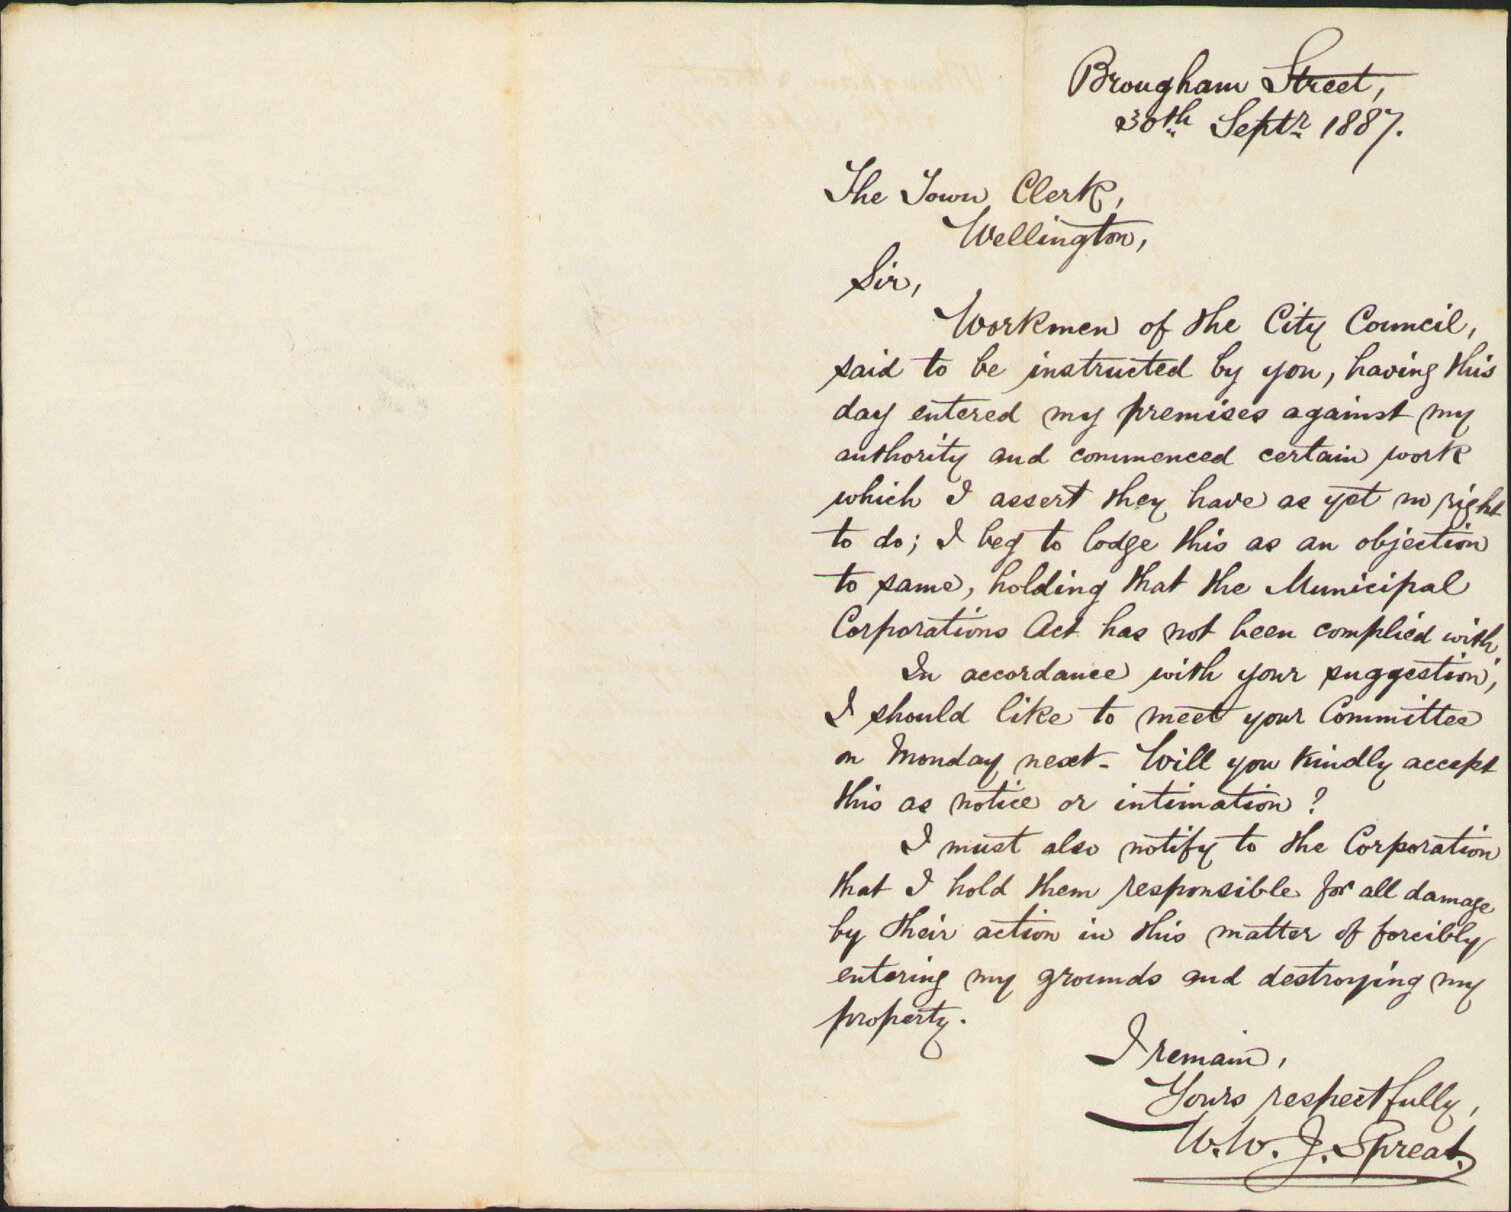 Brougham Street,
30th Septr 1887.
The Town Clerk,
Wellington,
Sir,
Workmen of the City Council,
said to be instructed by you, having this
day entered my premises against my
authority and commenced certain work
which I assert they have as yet no right
to do; I beg to lodge this as an objection
to same, holding that the Municipal
Corporations Act has not been complied with.
In accordance with your suggestion,
I should like to meet your Committee
on Monday next - Will you kindly accept
this as notice or intimation?
I must also notify to the Corporation
that I hold them responsible for all damage
by their action in this matter of forcibly
entering my grounds and destroying my
property.
I remain,
Yours respectfully,
W. W. J. Spreat.